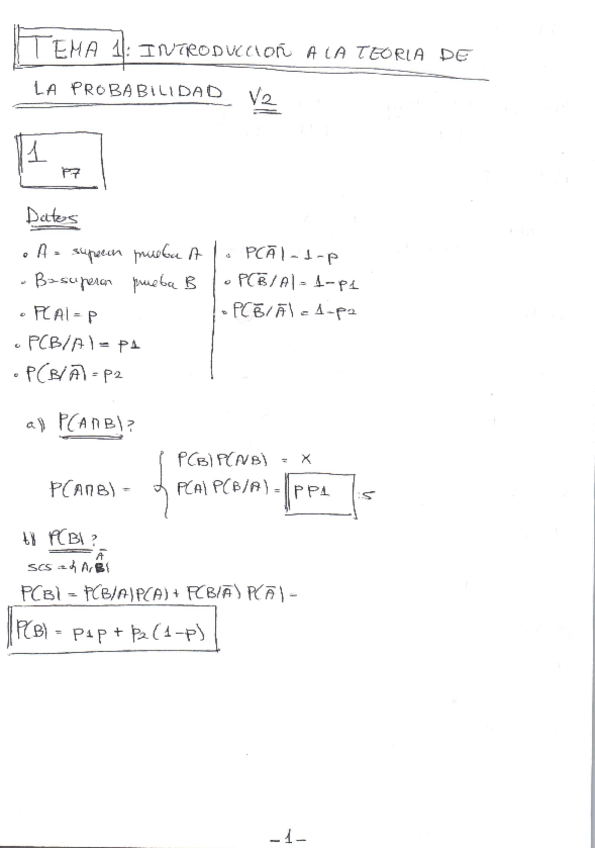 TEMA 1: INTRODUCCION A LA TEORIA DE
LA PROBABILIDAD V2
1
P7
Datos
• A = superan prueba A
• B = superan prueba B
• P(A) = p
• P(B/A) = p1
• P(B/Ā) = p2
• P(Ā) = 1-p
• P(B̄/A) = 1-p1
• P(B̄/Ā) = 1-p2
a) P(A∩B)?
P(A∩B) = { P(B) P(A/B) = X
P(A) P(B/A) = PP1
b) P(B)?
P(B) = P(B/A)P(A) + P(B/Ā) P(Ā) =
P(B) = p1p + p2(1-p)
-1-